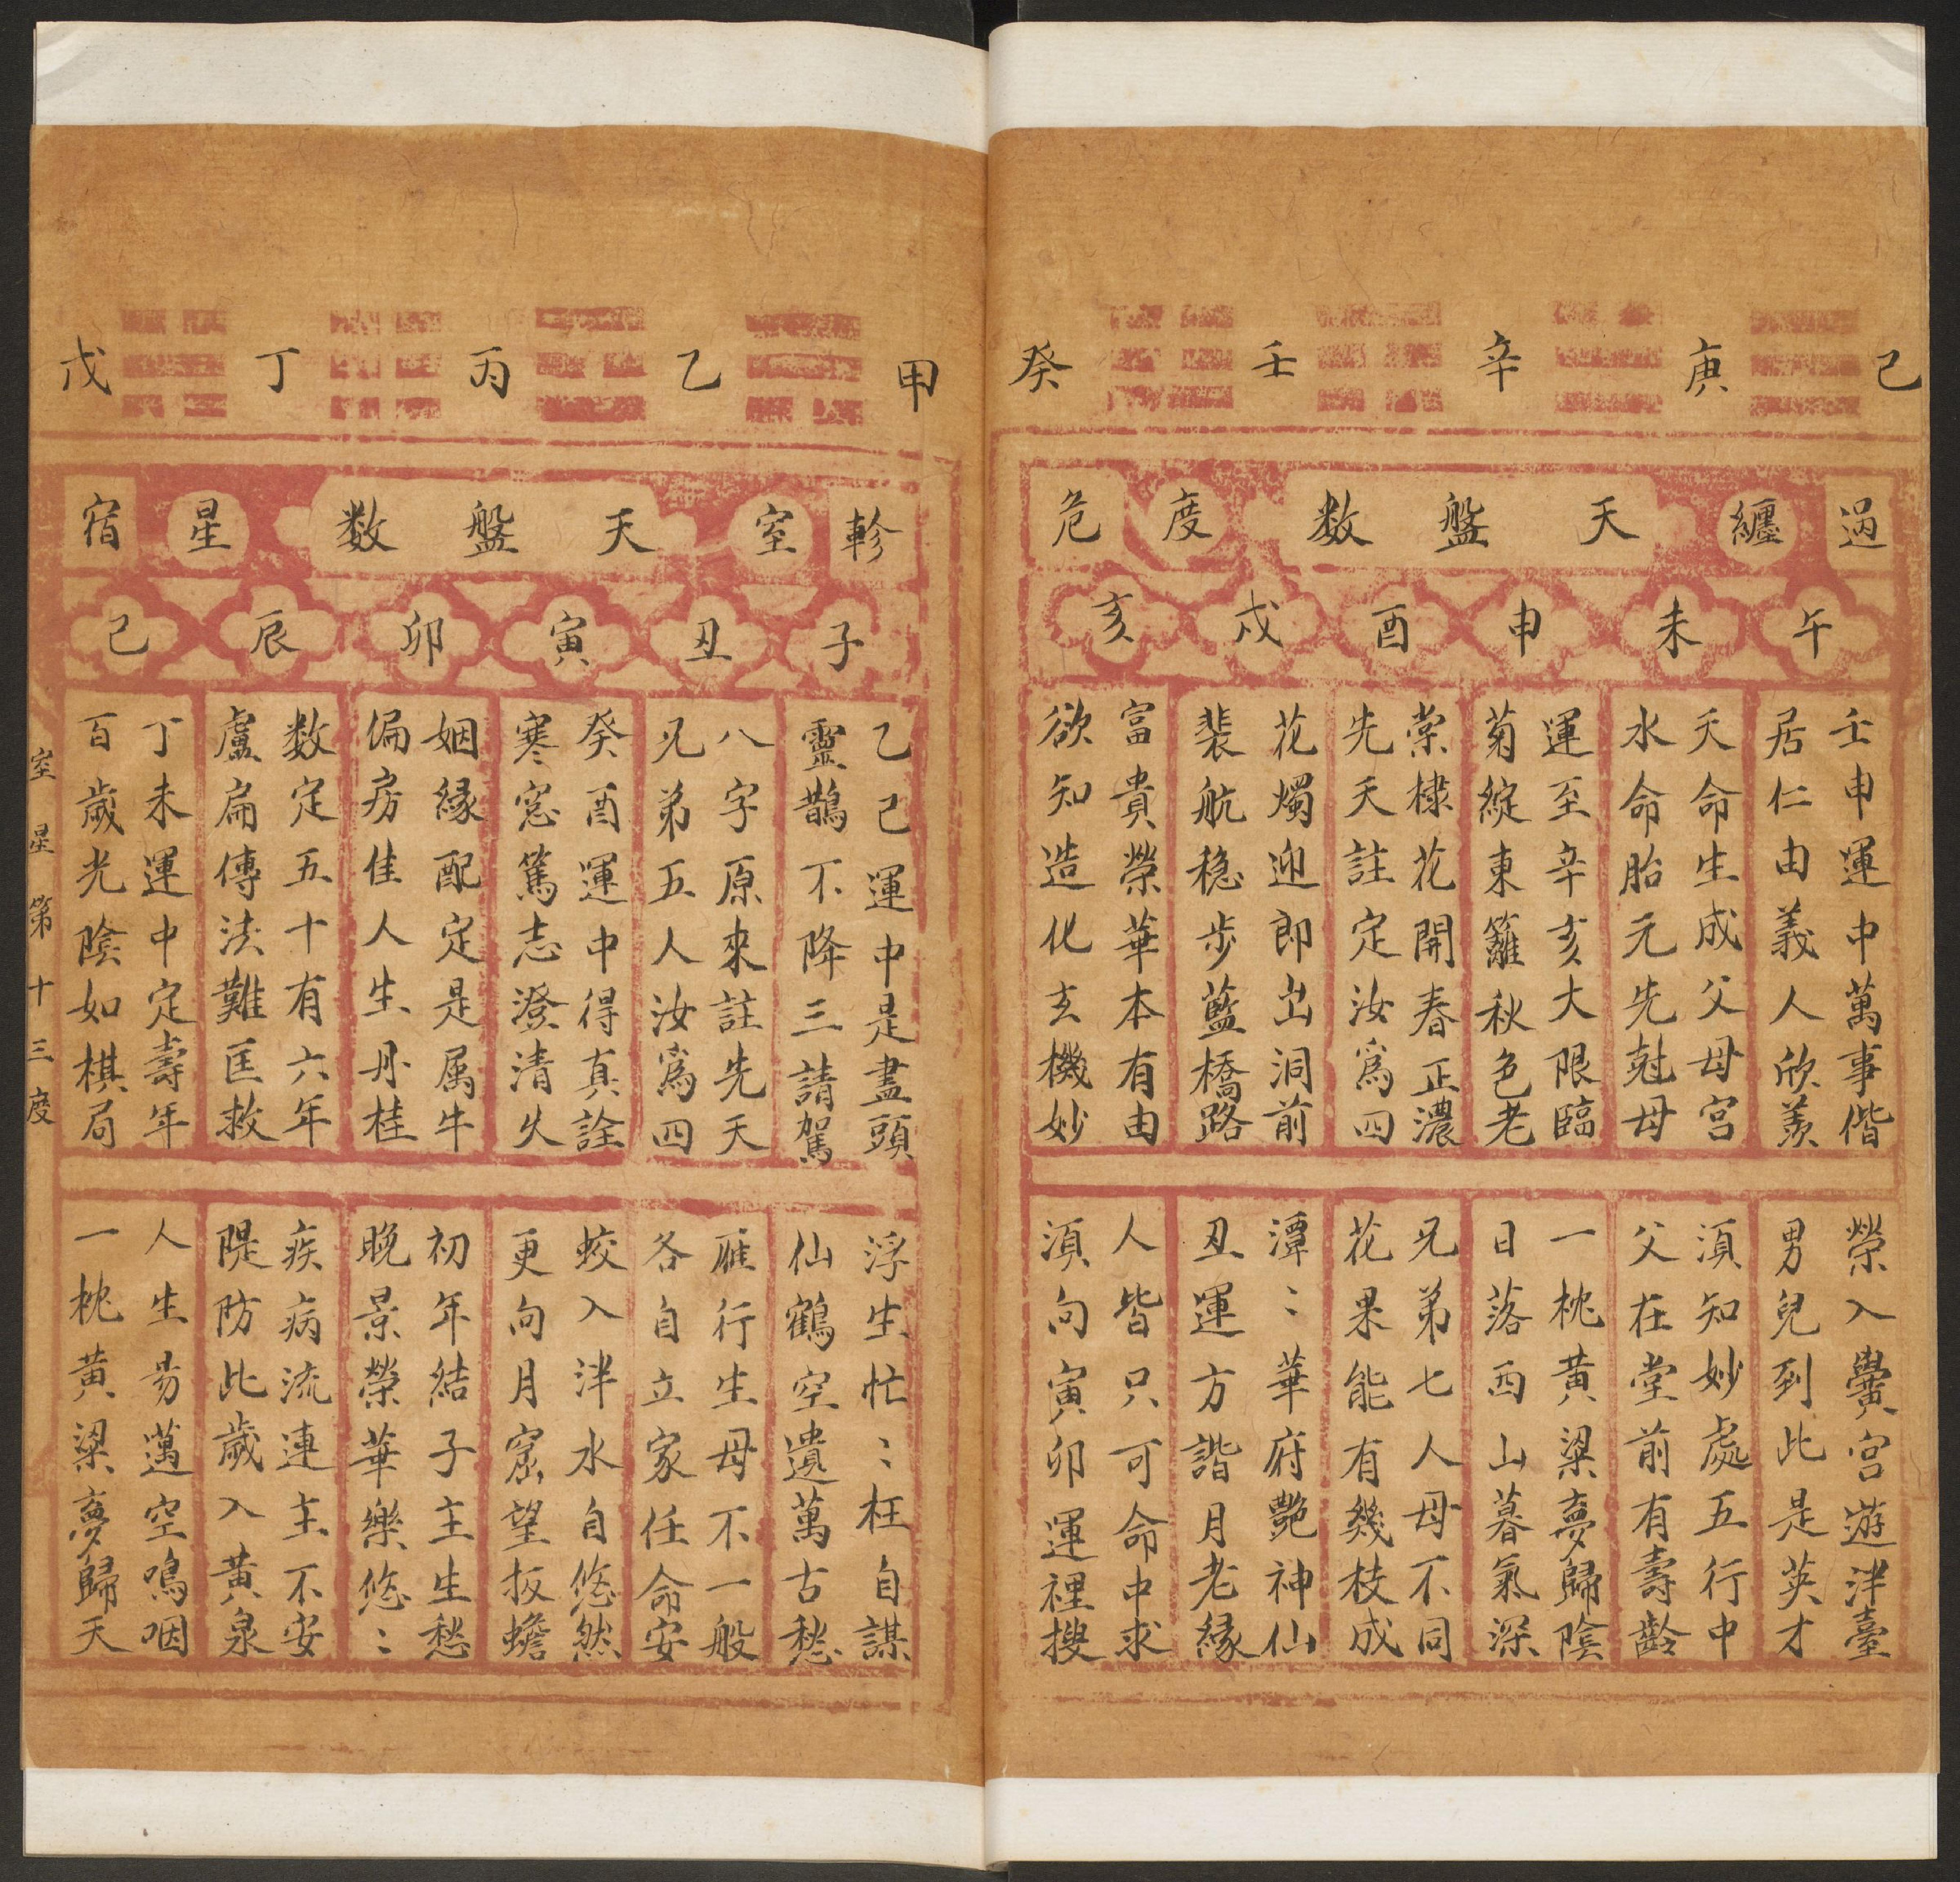 己 庚 辛 壬 癸
過 纏 天盤数 度 危
午 未 申 酉 戌 亥
壬申運中萬事偕
居仁由義人欣羨
榮入黌宮遊泮臺
男兒到此是英才
天命生成父母宮
水命胎元先尅母
須知妙處五行中
父在堂前有壽齡
運至辛亥大限臨
菊綻東籬秋色老
一枕黃粱夢歸陰
日落西山暮氣深
棠棣花開春正濃
先天註定汝為四
兄弟七人母不同
花果能有幾枝成
花燭迎郎出洞前
裴航穩步藍橋路
潭〻華府艷神仙
丑運方諧月老緣
富貴榮華本有由
欲知造化玄機妙
人皆只可命中求
須向寅卯運裡搜
甲 乙 丙 丁 戊
軫 室 天盤数 星 宿
子 丑 寅 卯 辰 巳
乙巳運中是盡頭
靈鵲不降三請駕
浮生忙〻枉自謀
仙鶴空遺萬古愁
八字原來註先天
兄弟五人汝為四
雁行生母不一般
各自立家任命安
癸酉運中得真詮
寒窓篤志澄清久
蛟入泮水自悠然
更向月窟望扳蟾
姻緣配定是属牛
偏房佳人生丹桂
初年結子主生愁
晚景榮華樂悠〻
数定五十有六年
盧扁傳法難匡救
疾病流連主不安
隄防此歲入黃泉
丁未運中定壽年
百歲光陰如棋局
人生昜邁空鳴咽
一枕黃粱夢歸天
室星第十三度